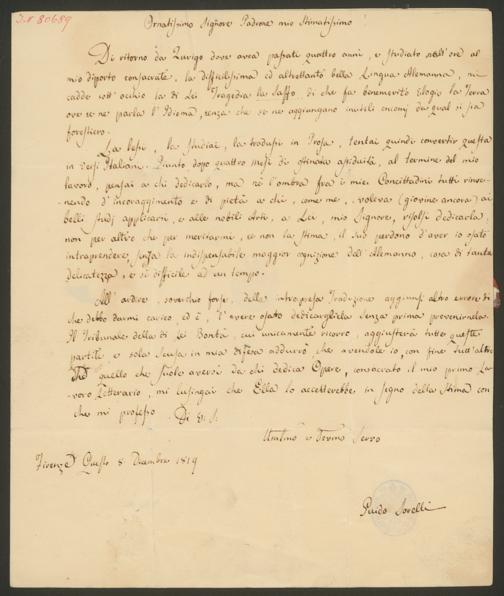 I.N 80689
Ornatissimo Signore Padrone mio Stimatissimo!
Di ritorno da Zurigo dove avea passati quattro anni, e studiato nell'ore al
mio diporto consacrate, la difficilissima ed altrettanto bella Lingua Allemanna, mi
cadde sott'occhio la di Lei Tragedia la Saffo di che fa benemerito Elogio la Terra
ove se ne parla l'Idioma, senza che se ne aggiungano inutili encomj da qual si sia
forestiero.
La lessi, la studiai, la tradussi in Prosa, tentai quindi convertir questa
in versi Italiani. Giunto dopo quattro mesi di ostinata assiduità, al termine del mio
lavoro, pensai a chi dedicarlo, ma nè l'ombra fra i miei Concittadini tutti rinve-
nendo d'incoraggimento e di pietà a chi, come me, voleva (giovine ancora) ai
belli Studj applicarsi, e alle nobili Arti, a Lei, mio Signore, risolsi dedicarla,
non per altro che per meritarmi, se non la stima, il suo perdono d'aver io osato
intraprendere, senza la indispensabile maggior cognizione dell'Allemanno, cosa di tanta
delicatezza, e sì difficile ad un tempo.
All'ardire, soverchio forse, della intrapresa Traduzione aggiunsi altro errore di
che debbo darmi carico, ed è, l'avere osato dedicargliela senza prima prevenirnela.
Il Tribunale della di Lei Bontà, cui unicamente ricorro, aggiusterà tutte queste
partite, e sola Scusa in mia difesa addurrò che avendole io, con fine tutt'altro
che quello che suole aversi da chi dedica Opere, consacrato il mio primo La-
voro Letterario, mi lusingai che Ella lo accetterebbe in segno della Stima con
che mi professo Di V. S.
Umilmo e Devmo Servo
Firenze Questo 8. Dicembre 1819
Guido Sorelli